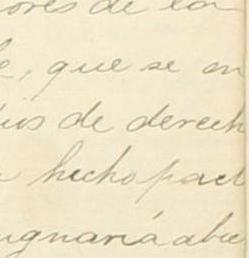 ores de la
, que se en
ios de derech
hecho pact
ugnaría abie